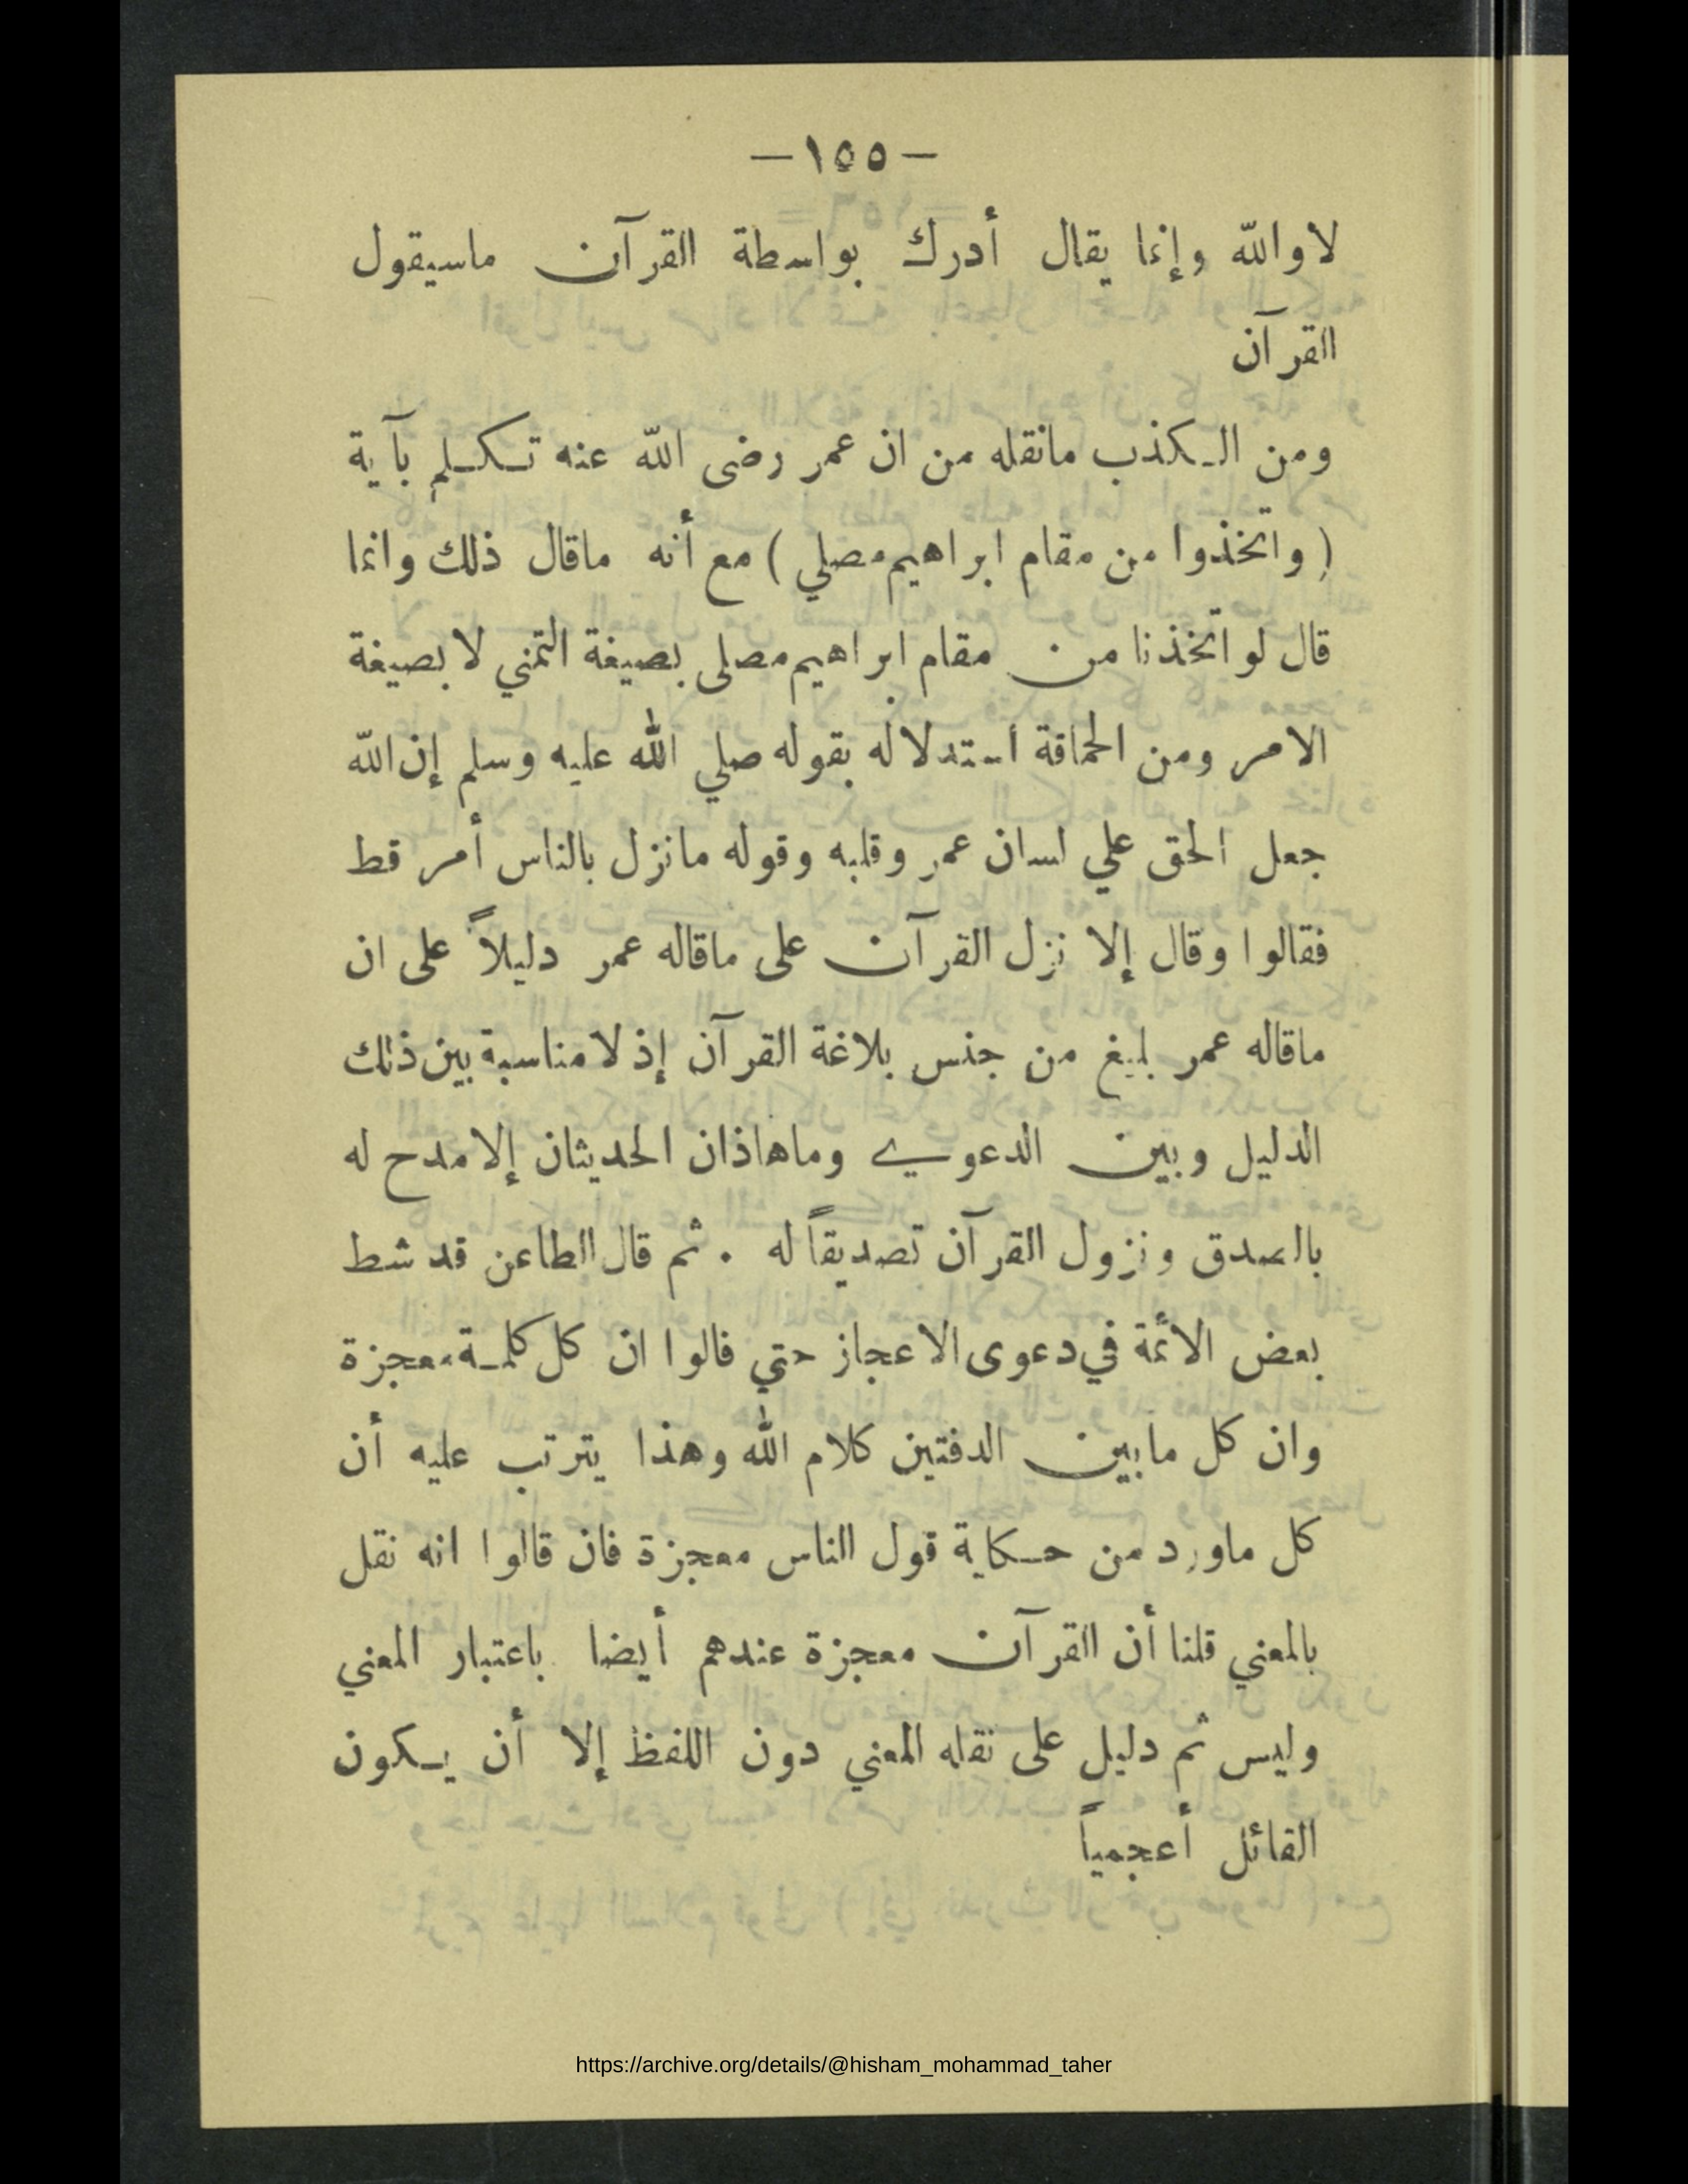 —١٥٥—
لاوالله وإنما يقال أدرك بواسطة القرآن ماسيقول
القرآن
ومن الكذب مانقله من ان عمر رضى الله عنه تكلم بآية
( واتخذوا من مقام ابراهيم مصلي ) مع أنه ماقال ذلك وانما
قال لو اتخذنا من مقام ابراهيم مصلى بصيغة التمني لا بصيغة
الامر ومن الحماقة استدلاله بقوله صلي الله عليه وسلم إن الله
جعل الحق علي لسان عمر وقلبه وقوله مانزل بالناس أمر قط
فقالوا وقال إلا نزل القرآن على ماقاله عمر دليلاً على ان
ماقاله عمر بليغ من جنس بلاغة القرآن إذ لا مناسبة بين ذلك
الدليل وبين الدعوي وماهاذان الحديثان إلا مدح له
بالصدق ونزول القرآن تصديقاً له . ثم قال الطاعن قد شط
بعض الائمة في دعوى الاعجاز حتي قالوا ان كل كلمة معجزة
وان كل مابين الدفتين كلام الله وهذا يترتب عليه أن
كل ماورد من حكاية قول الناس معجزة فان قالوا انه نقل
بالمعني قلنا أن القرآن معجزة عندهم أيضا باعتبار المعني
وليس ثم دليل على نقله المعني دون اللفظ إلا أن يكون
القائل أعجمياً
https://archive.org/details/@hisham_mohammad_taher